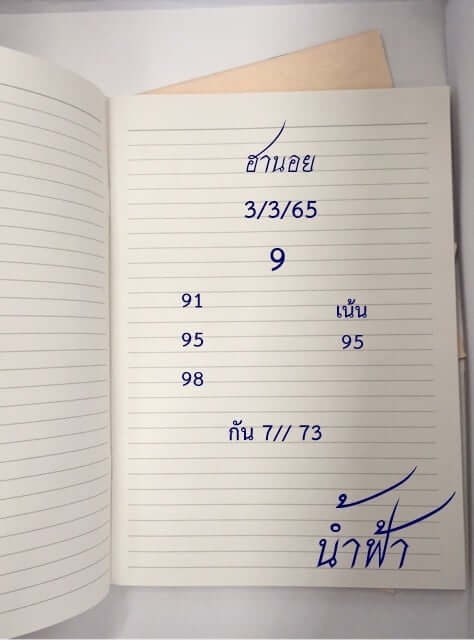 ฮานอย
3/3/65
9
91
เน้น
95
95
98
กัน 7// 73
น้ำฟ้า